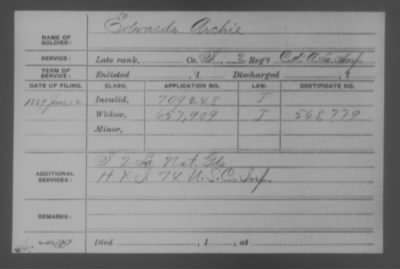 NAME OF SOLDIER: Edwards Archie
SERVICE: Late rank, Co. I, 2 Reg't Inf.
TERM OF SERVICE: Enlisted , 1 Discharged , 1
DATE OF FILING. CLASS. APPLICATION NO. LAW. CERTIFICATE NO.
1889 June 12 Invalid, 709248 J
Widow, 657,909 J 568,779
Minor,
ADDITIONAL SERVICES: Nat. Gds
H & I 74 U.S.C. Inf.
REMARKS:
Died , 1 , at